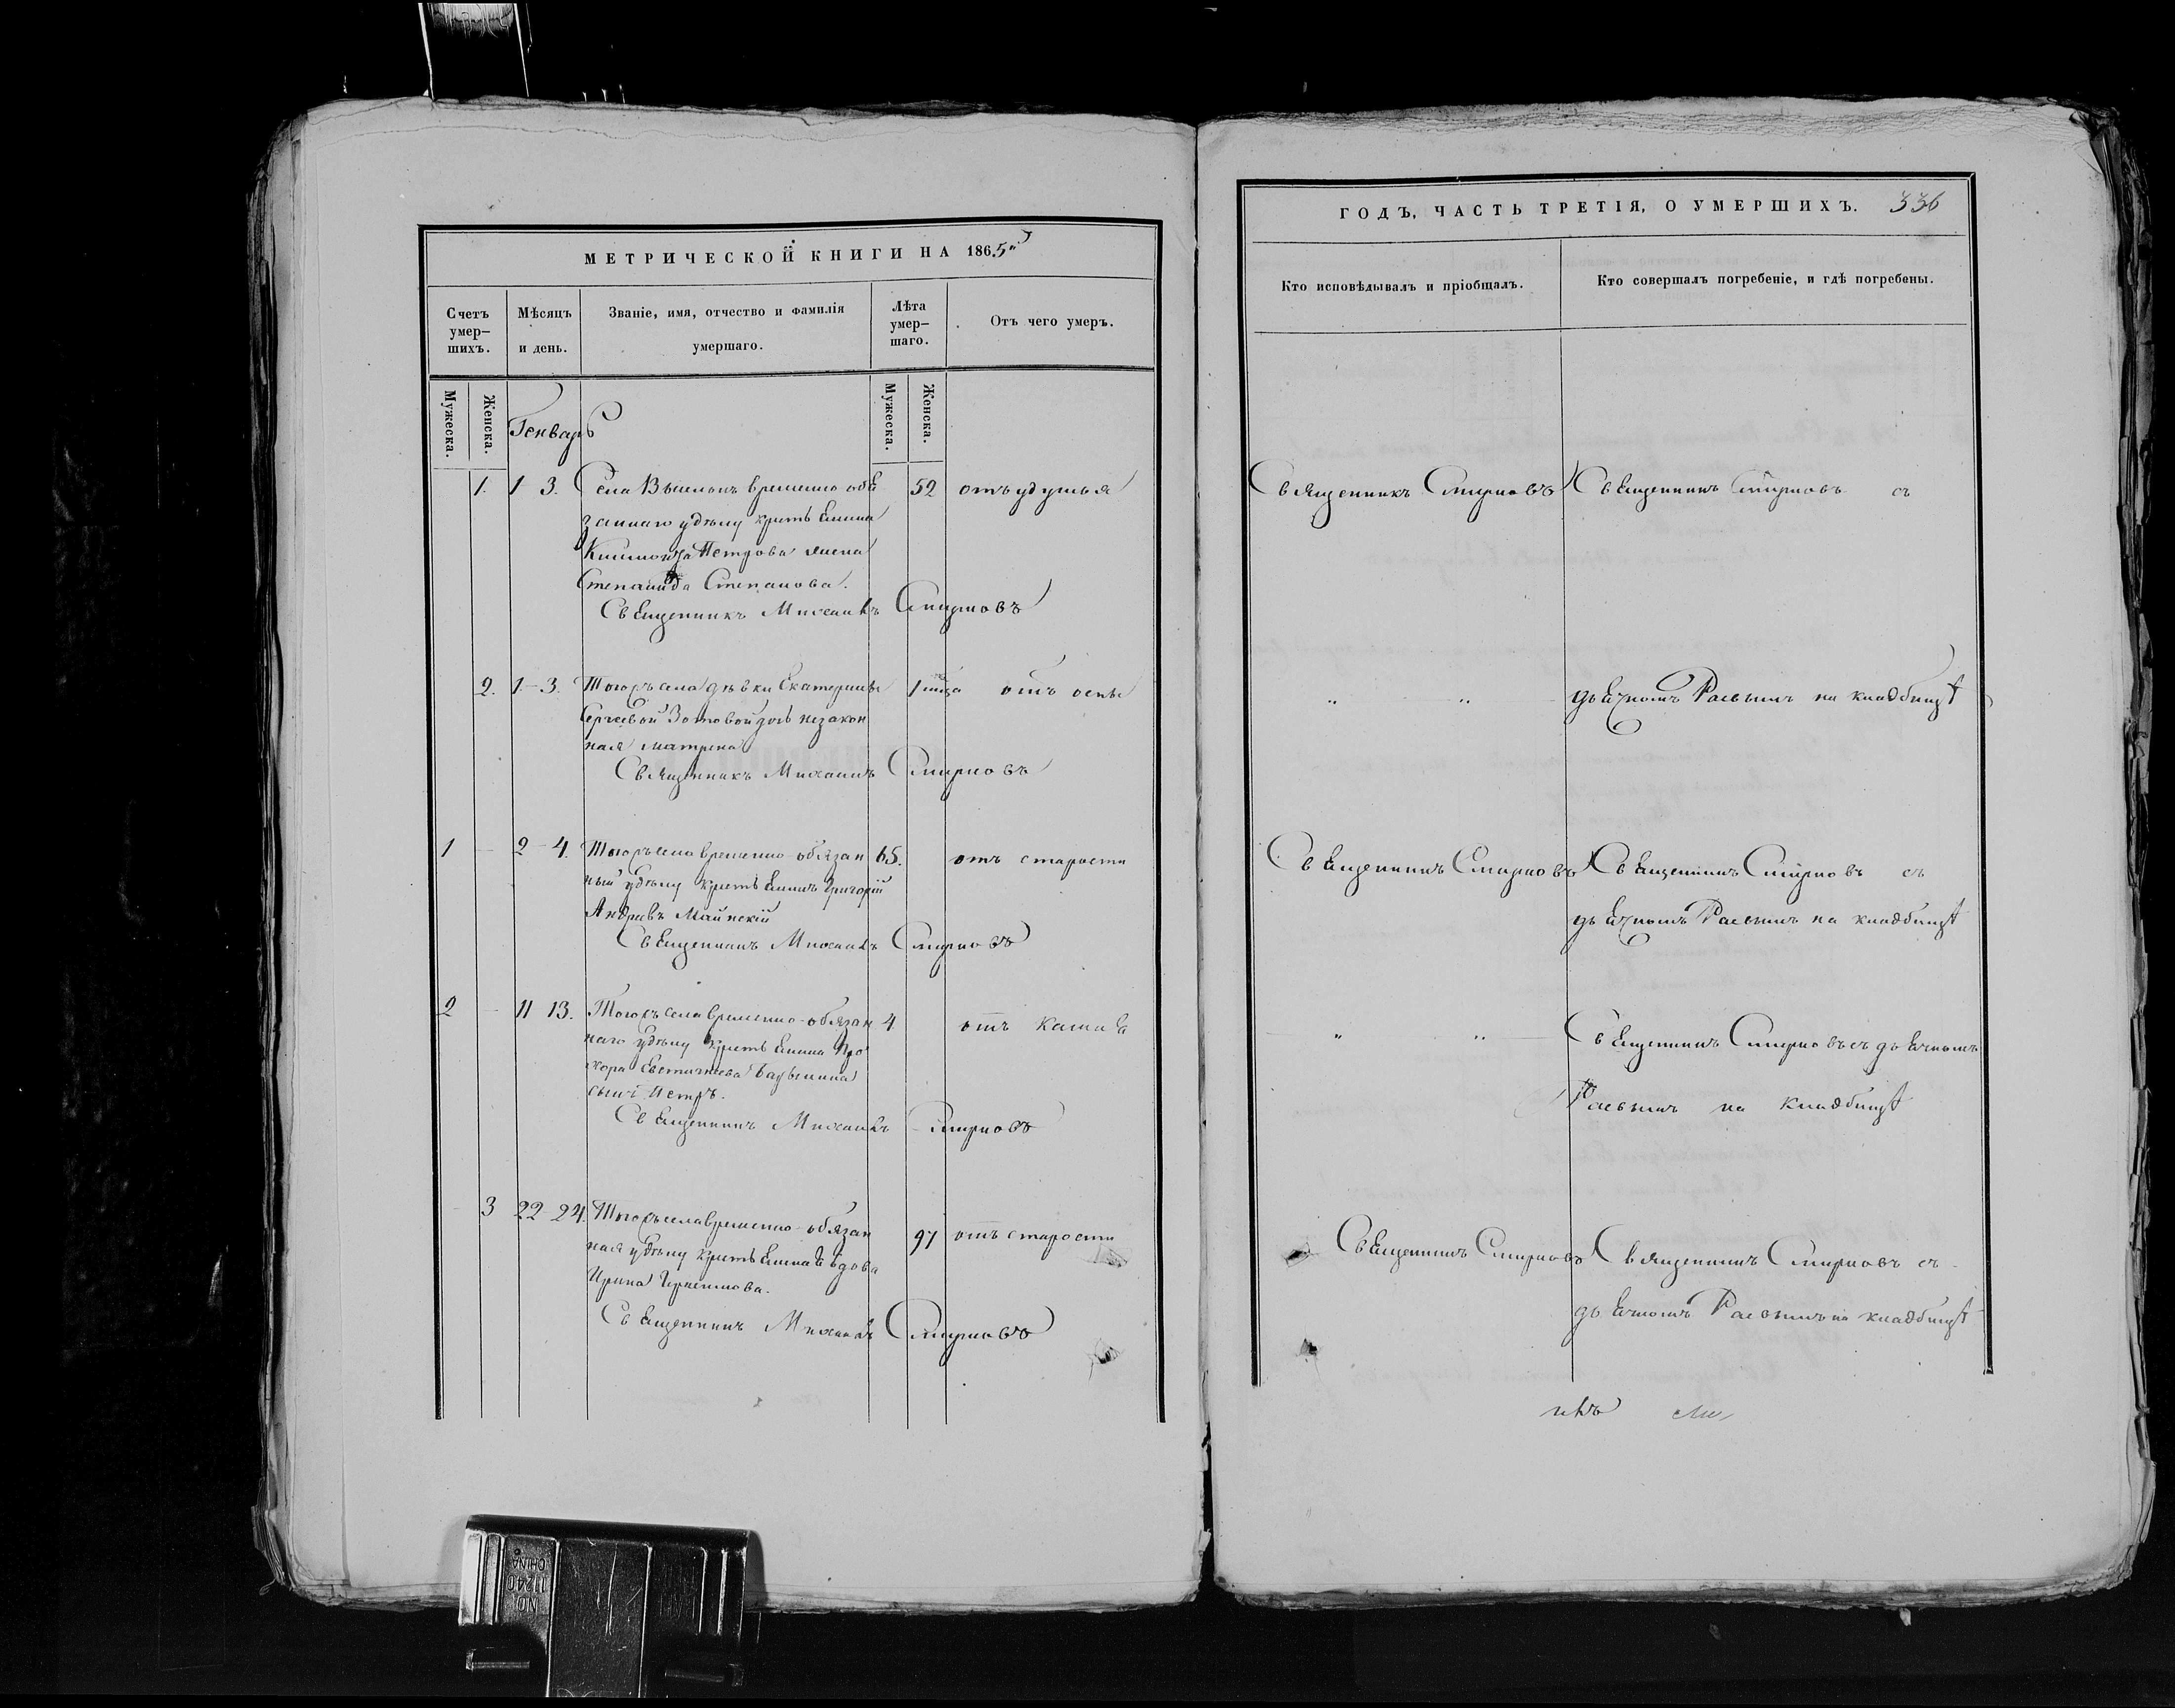 МЕТРИЧЕСКОЙ КНИГИ НА 1865й
Счетъ умер-
шихъ.
Мѣсяцъ
и день.
Званіе, имя, отчество и фамилія
умершаго.
Лѣта
умер-
шаго.
Отъ чего умеръ.
Мужеска.
Женска.
Мужеска.
Женска.
Генварь
1. 1 3. Села временно обя 52 отъ удушья
заннаго удѣлу крестьянина
Петрова жена
Степанида Степанова.
Священникъ Михаилъ Смирновъ
2. 1-3. Тогожъ села дѣвки Екатерины 1 отъ оспы
Сергеевой Зотовой дочь незакон
ная Матрена
Священникъ Михаилъ Смирновъ
1 - 2-4. Тогожъ села временно-обязан 65. отъ старости
ный удѣлу крестьянинъ Григорій
Андреевъ Майнскій
Священникъ Михаилъ Смирновъ
2 - 11 13. Тогожъ села временно-обязан 4 отъ кашля
наго удѣлу крестьянина Про
хора
сынъ Петръ.
Священникъ Михаилъ Смирновъ
3 22-24. Тогожъ села временно-обязан 97 отъ старости
ная удѣлу крестьянка вдова
Ирина
Священникъ Михаилъ Смирновъ
ГОДЪ, ЧАСТЬ ТРЕТІЯ, О УМЕРШИХЪ. 336
Кто исповѣдывалъ и пріобщалъ.
Кто совершалъ погребеніе, и гдѣ погребены.
Священникъ Смирновъ Священникъ Смирновъ съ
" " дьячкомъ Раевымъ на кладбищѣ
Священникъ Смирновъ Священникъ Смирновъ съ
дьячкомъ Раевымъ на кладбищѣ
" " Священникъ Смирновъ съ дьячкомъ
Раевымъ на кладбищѣ
Священникъ Смирновъ Священникъ Смирновъ съ
дьячкомъ Раевымъ на кладбищѣ
никъ Ми
NO 1124C
CHINA